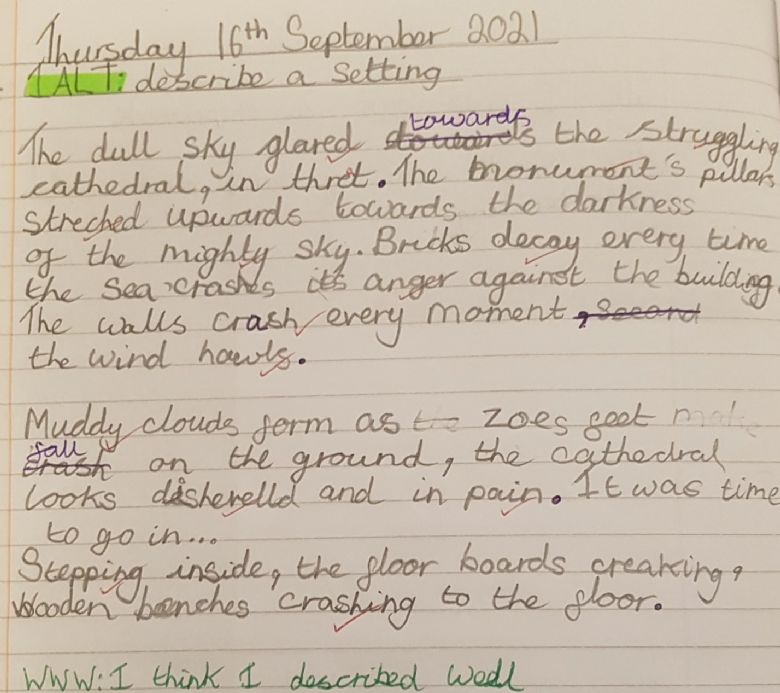 Thursday 16th September 2021
IALT: describe a setting
towards
The dull sky glared the struggling
cathedral, in thret. The monument's pillars
streched upwards towards the darkness
of the mighty sky. Bricks decay every time
the sea crashes it's anger against the building.
The walls crash every moment, second
the wind howls.
Muddy clouds form as Zoes feet make
fall
crash on the ground, the cathedral
looks disherelld and in pain. It was time
to go in...
Stepping inside, the floor boards creaking,
wooden benches crashing to the floor.
WWW: I think I described well